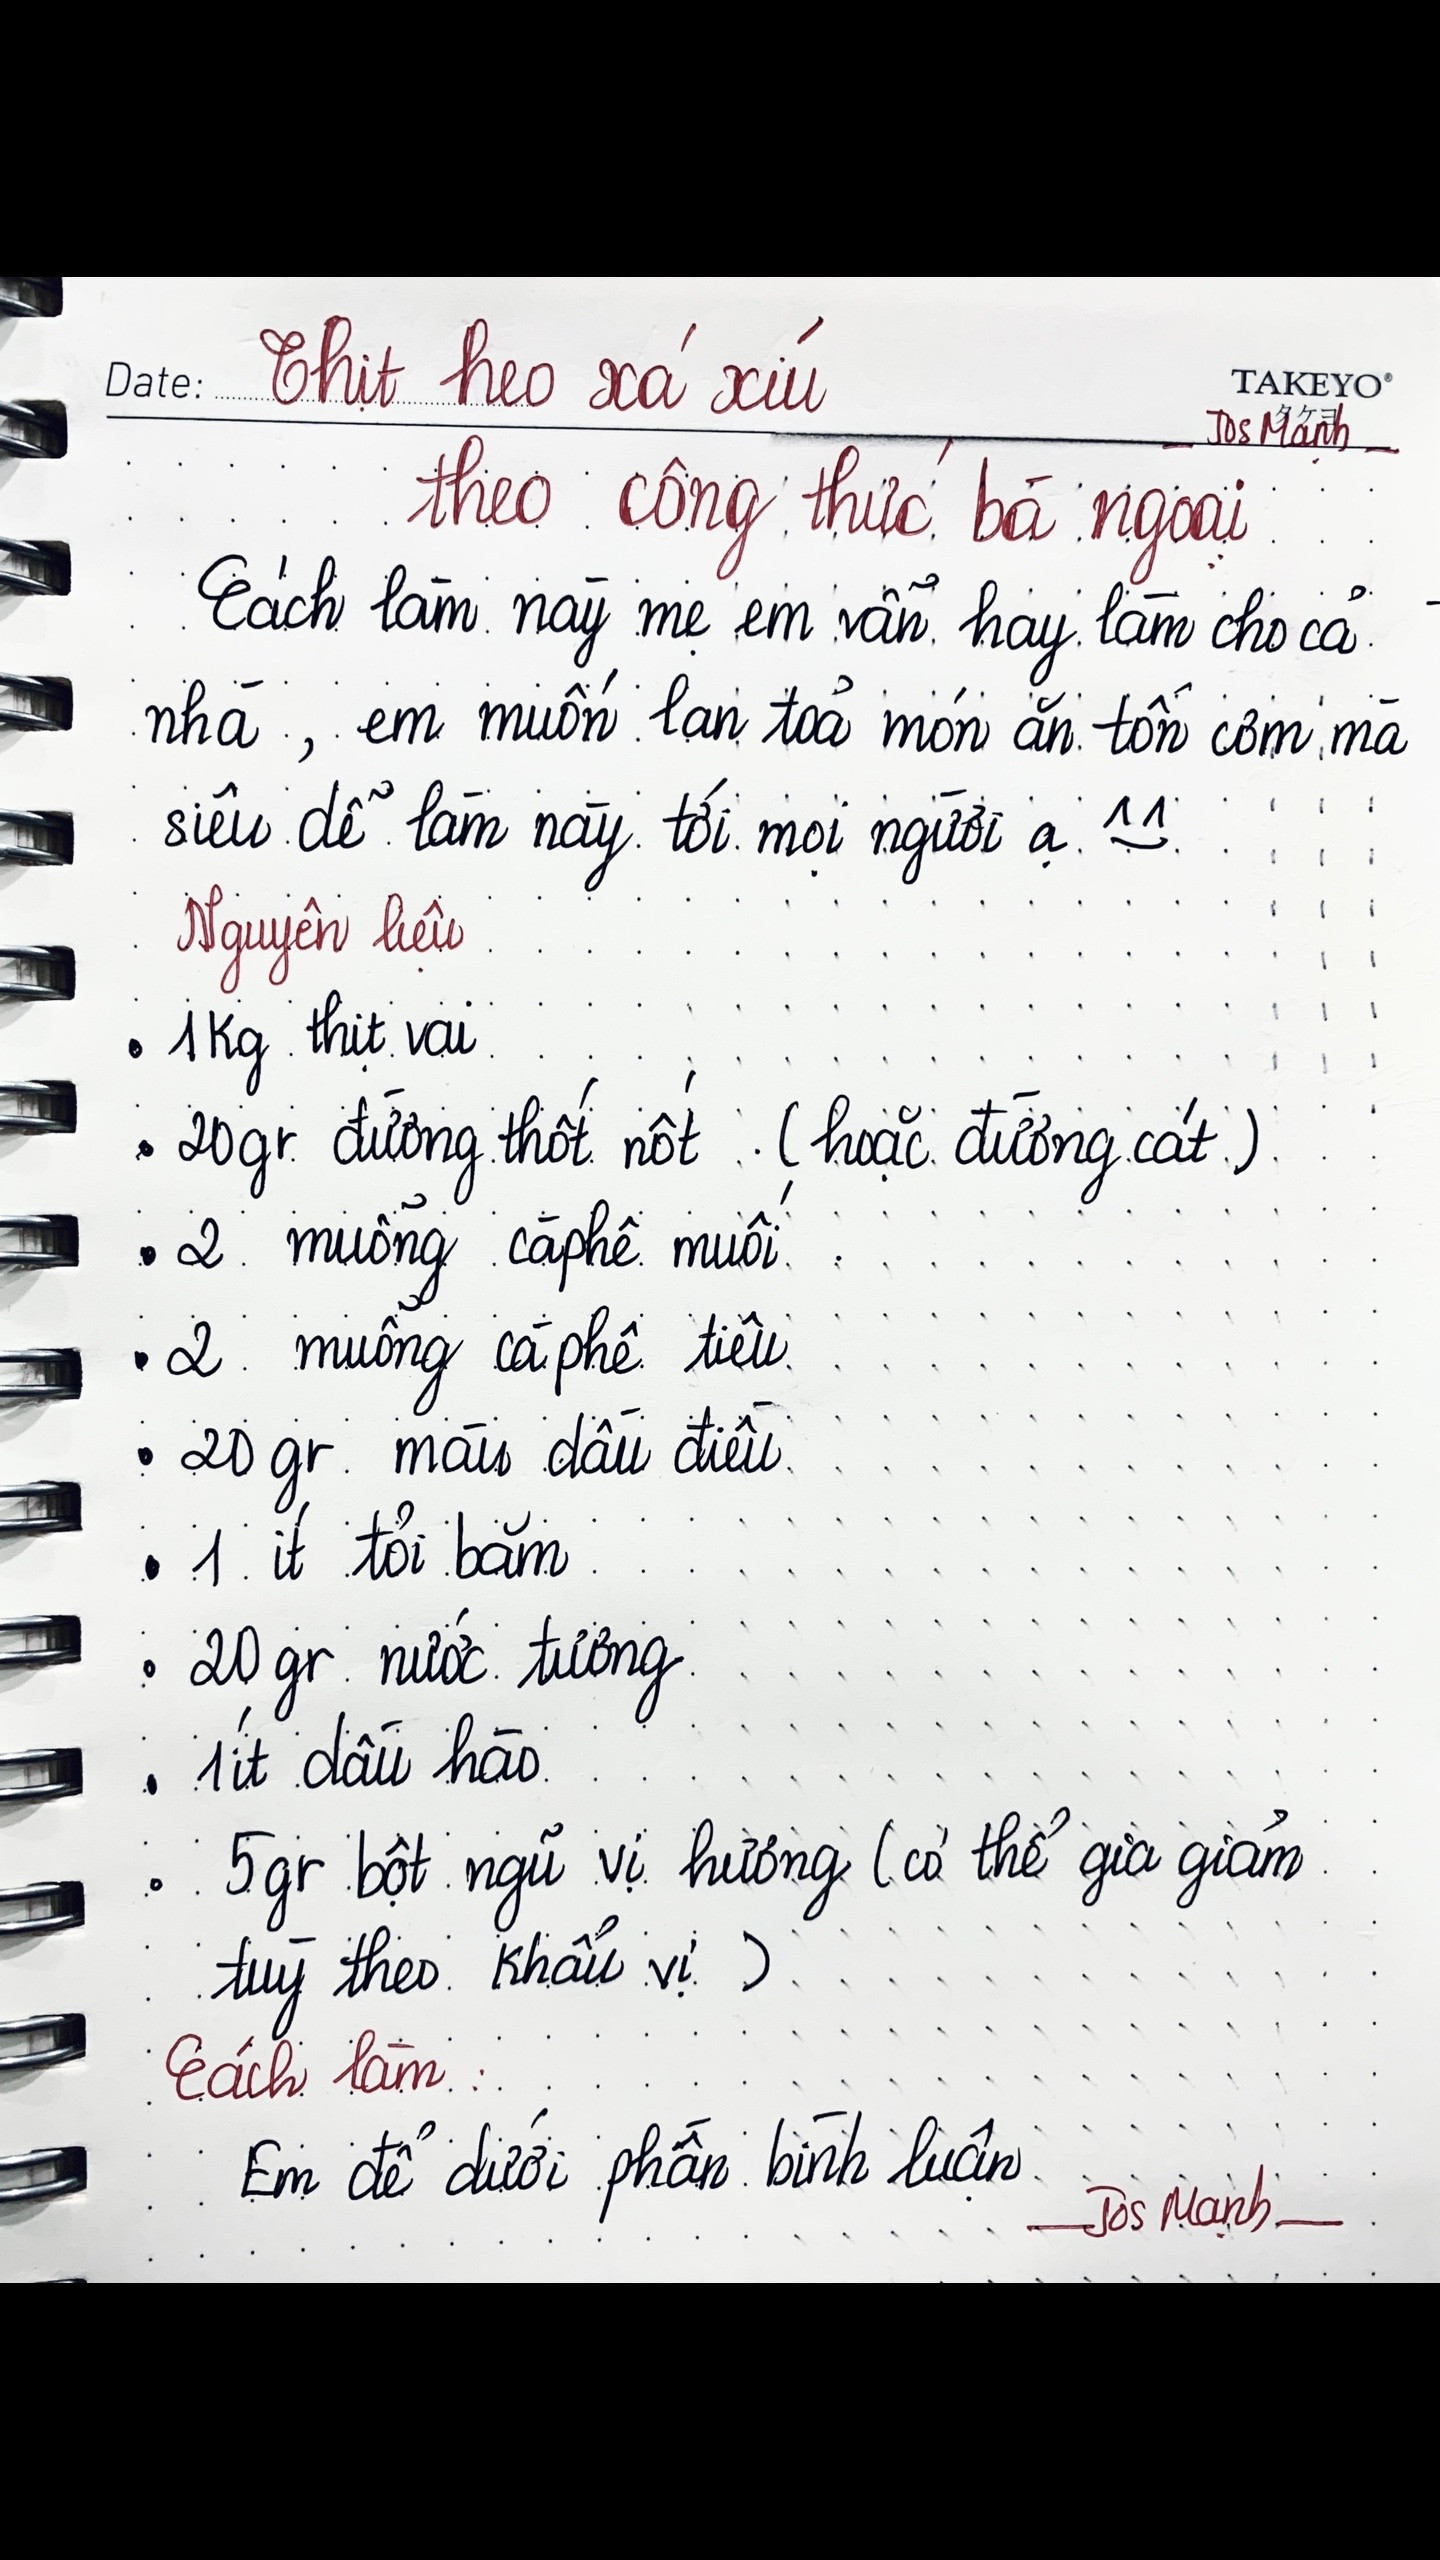 Date: Thịt heo xá xíu
TAKEYO®
Jos Mạnh
theo công thức bà ngoại
Cách làm này mẹ em vẫn hay làm cho cả
nhà, em muốn lan toả món ăn tốn cơm mà
siêu dễ làm này tới mọi người ạ ^^
Nguyên liệu
• 1Kg thịt vai
• 20gr đường thốt nốt (hoặc đường cát)
• 2 muỗng cà phê muối
• 2 muỗng cà phê tiêu
• 20gr màu dầu điều
• 1 ít tỏi băm
• 20gr nước tương
• 1 ít dầu hào
• 5gr bột ngũ vị hương (có thể gia giảm
tuỳ theo khẩu vị)
Cách làm:
Em để dưới phần bình luận
Jos Mạnh